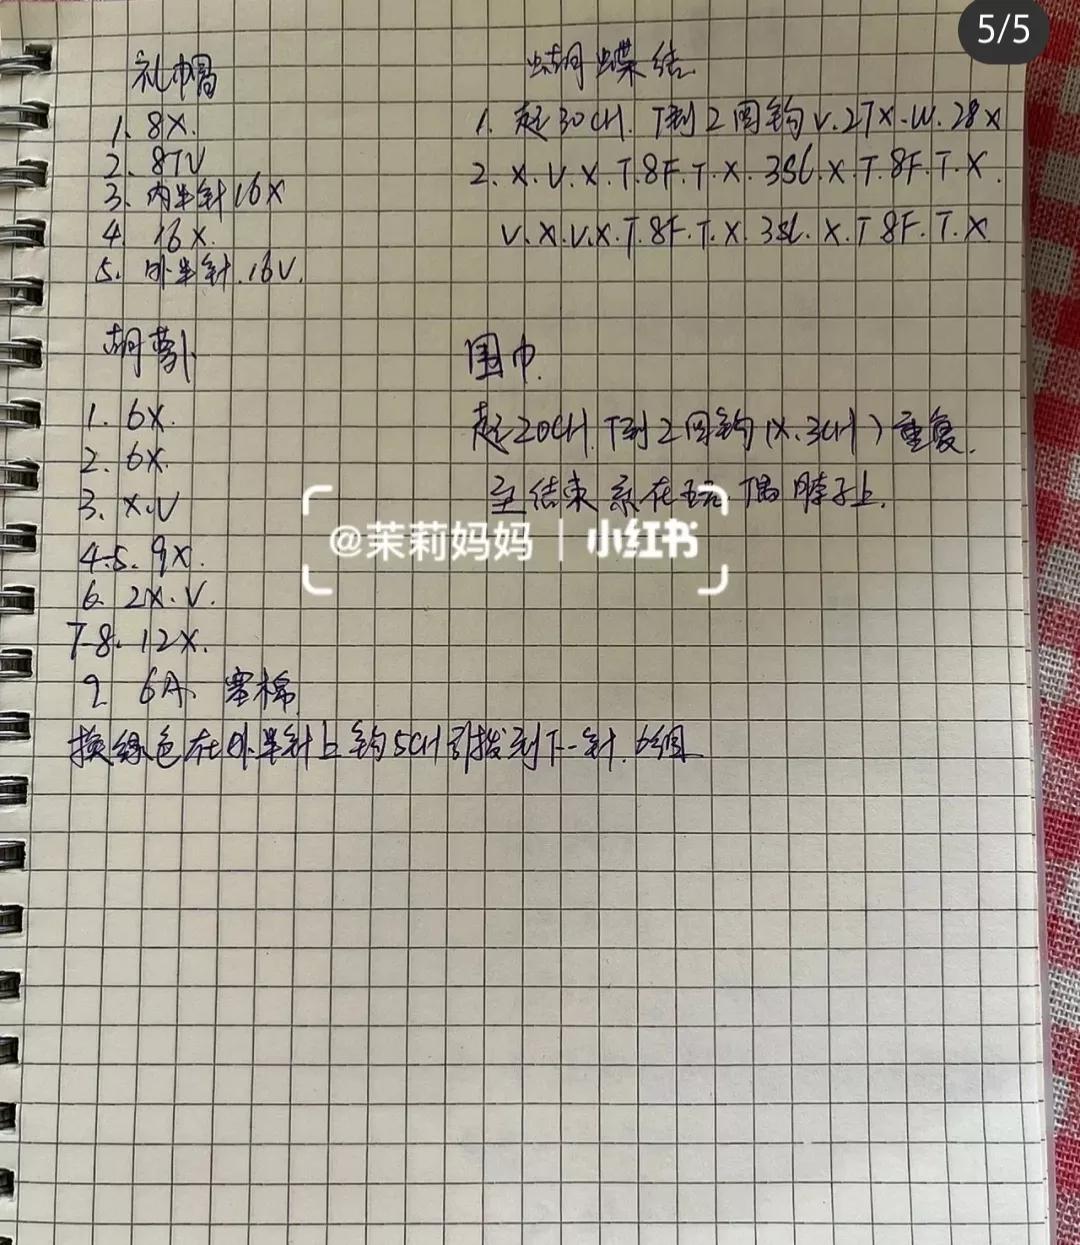 5/5
礼帽
1. 8X.
2. 8TV
3. 内半针16X
4. 16X.
5. 外半针.16V.
蝴蝶结
1. 起30CH. T到2圈钩V.27X.W.28X
2. X.V.X.T.8F.T.X.3SL.X.T.8F.T.X.
V.X.V.X.T.8F.T.X.3SL.X.T 8F.T.X
胡萝卜
1. 6X.
2. 6X.
3. X.V
4.5. 9X.
6. 2X.V.
7-8. 12X.
9 6A. 塞棉
换绿色在外半针上钩5CH引拨到下一针.6组
围巾.
起20CH. T到2圈钩(X.3CH)重复.
至结束 系在玩偶脖子上.
@茉莉妈妈 | 小红书